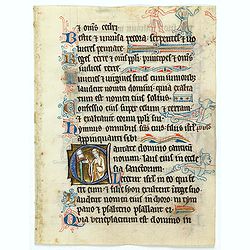 et om̄s cedri
Bestie et universa pecora serpentes et vo
lucres pennate
Reges terre et om̄s ppl̄i principes et om̄s
iudices terre
Iuvenes et virgines senes cum iunioribz
laudent nomen domini quia exalta
tum est nomen eius solius
Confessio eius super celum et terram
et exaltavit cornu ppl̄i sui
Hymnus omnibus sc̄is eius filiis isrl̄
appropinquanti sibi
Cantate domino canticū
novum laus eius in eccle
sia sanctorum
Letetur isrl̄ in eo qui fe
cit eum et filie syon exultent in rege suo
laudent nomen eius in choro in tym
pano et psalterio psallant ei
Quia beneplacitum est domino in